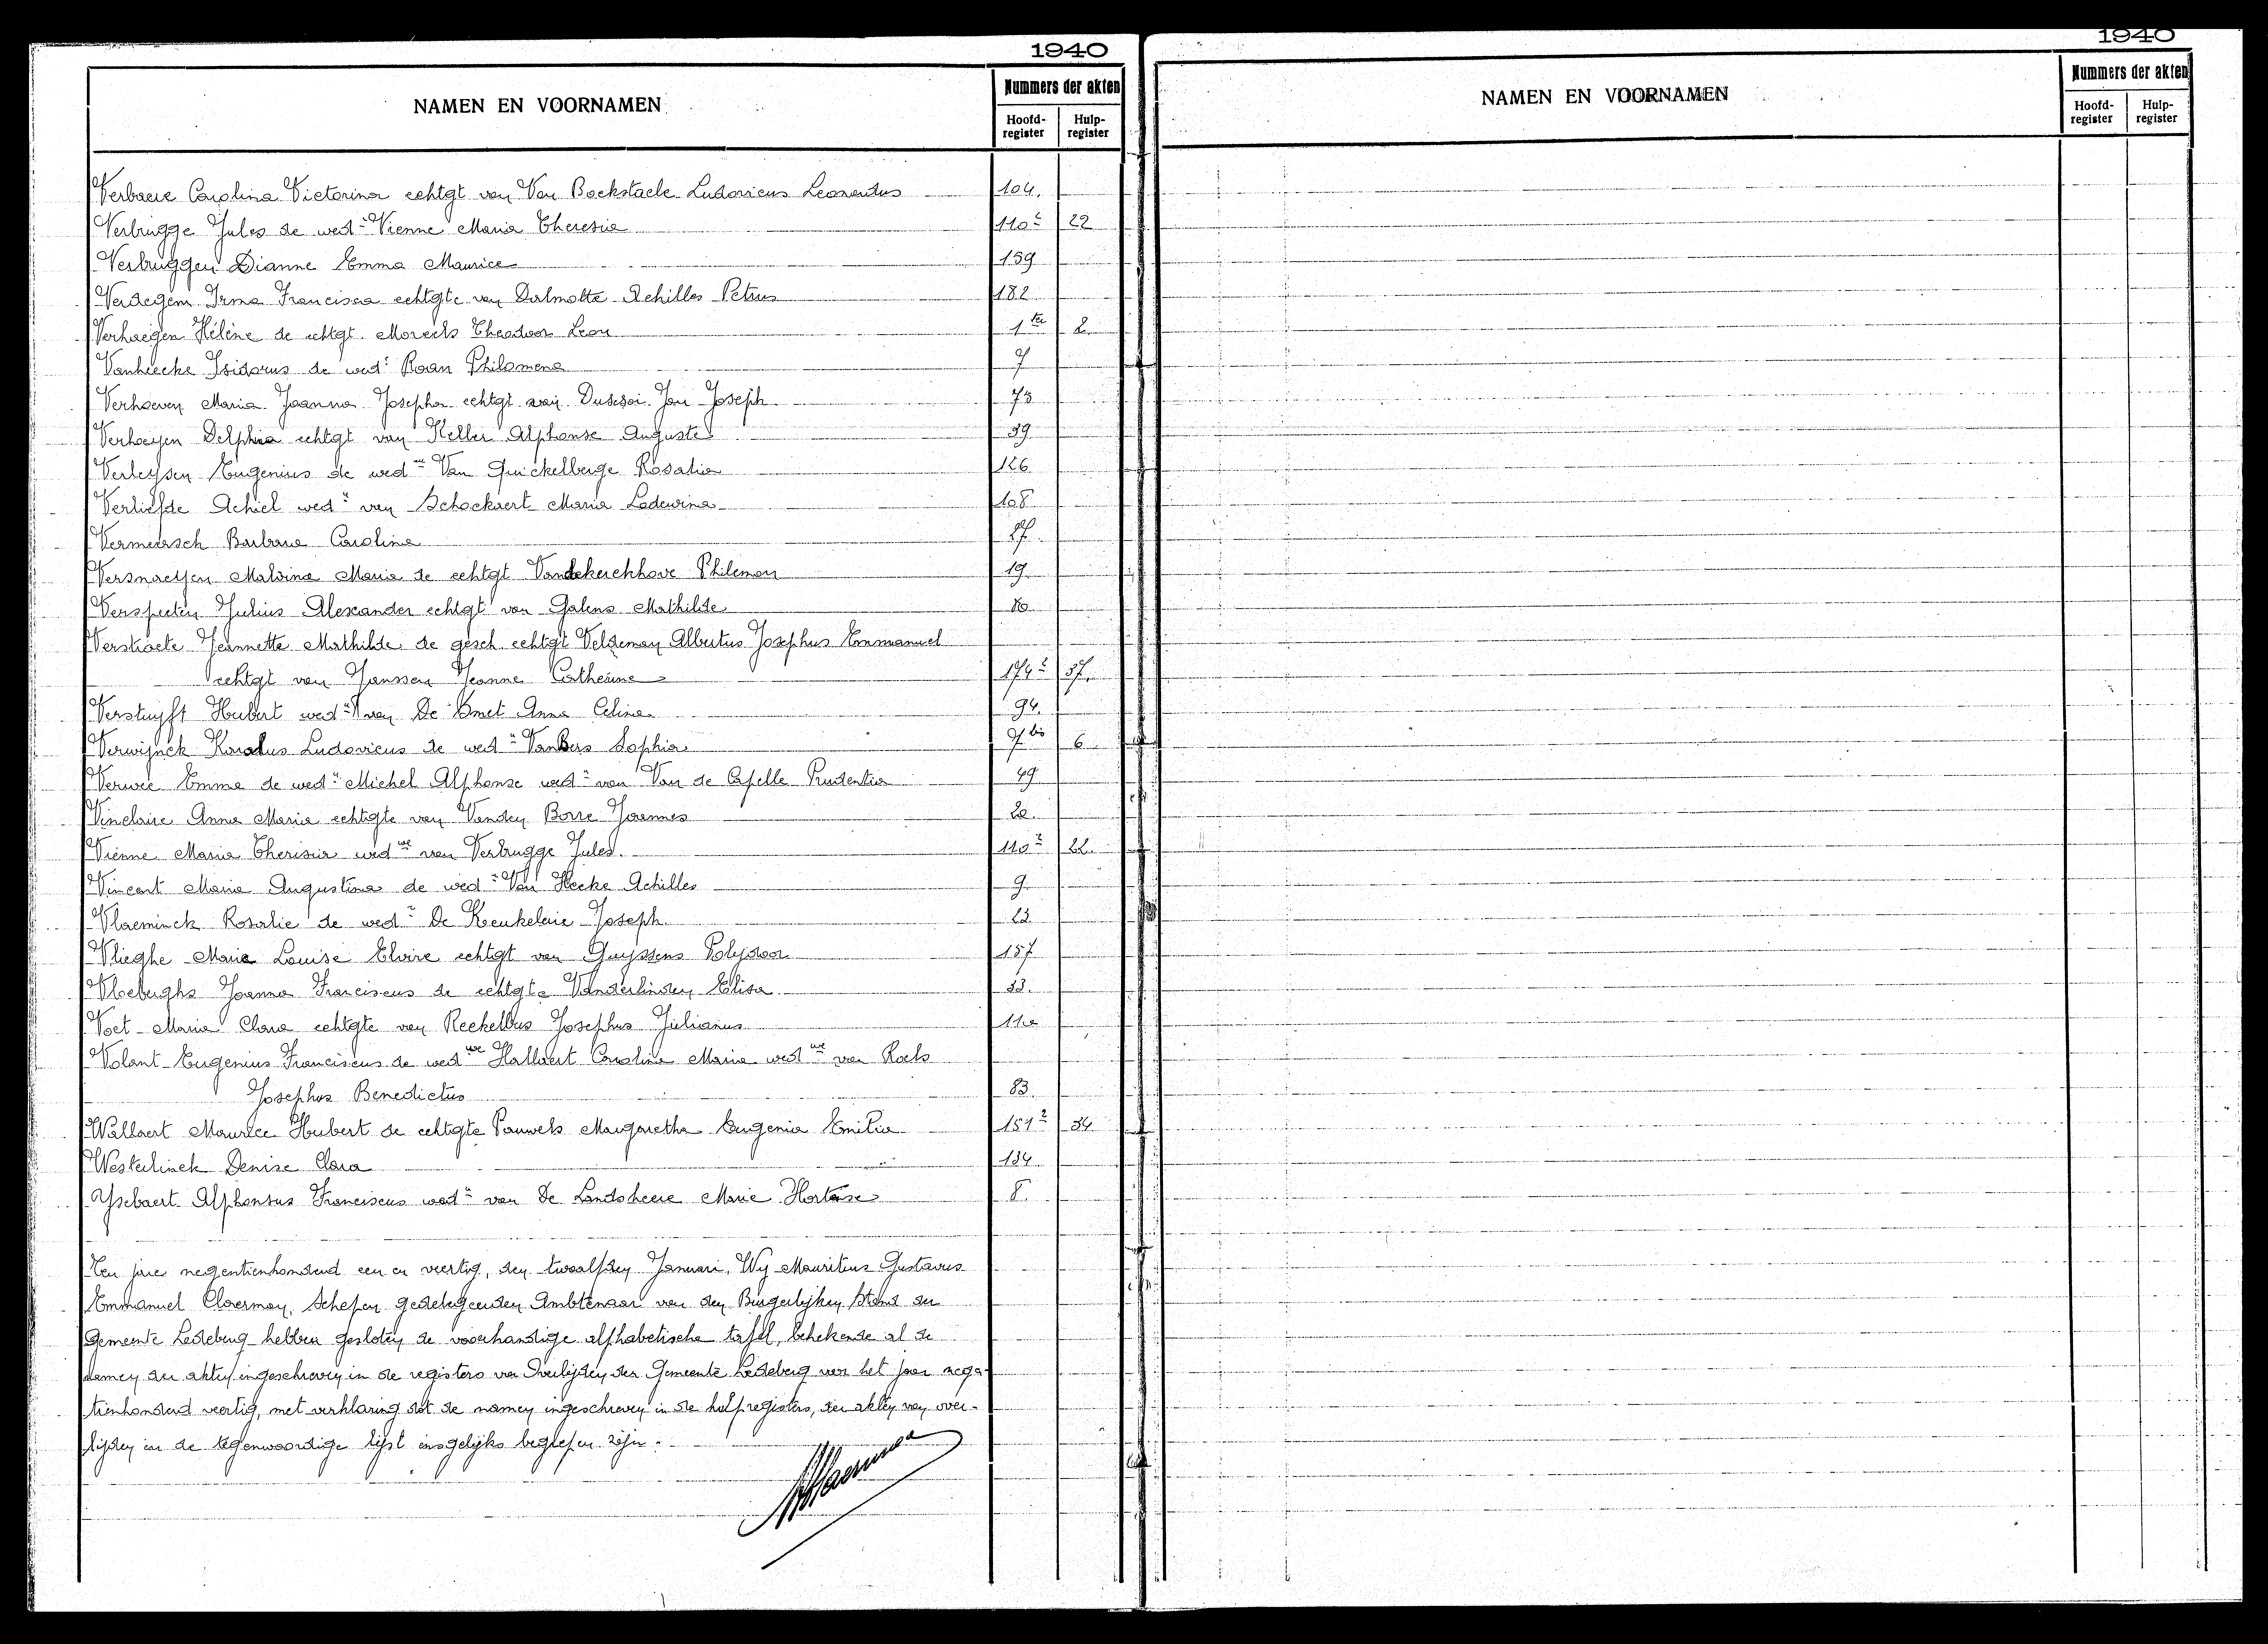 1940
NAMEN EN VOORNAMEN
Nummers der akten
Hoofd-register Hulp-register
Verbaere Carolina Victorina echtgt van Van Bockstaele Ludovicus Leonardus 104.
Verbrugge Jules de wede Vienne Maria Theresia 110² 22
Verbruggen Dianne Emma Maurice 159
Verdegem Irma Francisca echtgte van Dalmotte Achilles Petrus 182
Verhaegen Hélène de echtgt. Moreels Theodoor Leon 1ter 2
Vanhecke Isidorus de wede Roan Philomena 7
Verhoeven Maria Joanna Josepha echtgt van Jan Joseph 73
Verhoeyen Delphia echtgt van Keller Alphonse Auguste 39
Verleysen Eugenius de wedwe Van Quickelberge Rosalia 126
Verliefde Achiel wedr van Schockaert Maria Lodewina 108
Vermeersch Barbara Carolina 27
Versnaeyen Malvina Maria de echtgt Vandekerckhove Philemon 19
Verspeeten Julius Alexander echtgt van Galens Mathilde 80
Verstraete Jeannette Mathilde de gesch. echtgt Veldeman Albertus Josephus Emmanuel
echtgt van Janssen Jeanne Catherine 174² 37.
Verstuyft Hubert wedr van De Smet Anna Celina 94.
Verwijnck Karolus Ludovicus de wede VanBers Sophia 7bis 6
Verwee Emma de wedr Michel Alphonse wedr van Van de Capelle Prudentia 49
Vinclaire Anna Maria echtgte van Vanden Borre Joannes 20.
Vienne Maria Theresia wedwe van Verbrugge Jules. 110² 22.
Vincent Maria Augustina de wedr Van Hecke Achilles 9
Vlaeminck Rosalie de wedr De Keukelaire Joseph 23
Vlieghe Maria Louise Elvire echtgt van Guyssens Polydoor 157
Vloeberghs Joanna Franciscus de echtgte Vanderlinden Elisa 33.
Voet Maria Clara echtgte van Reckelbus Josephus Julianus 112
Volant Eugenius Franciscus de wedwe Hallaert Carolina Maria wedwe van Roels
Josephus Benedictus 83
Wallaert Maurice Hubert de echtgte Pauwels Margaretha Eugenia Emilia 151² 34
Westerlinck Denise Clara 134
Ysebaert Alphonsus Franciscus wedr van De Landsheere Marie Hortense 8.
Ten jare negentienhonderd een en veertig, den twaalfden Januari, Wy Mauritius Gustavus
Emmanuel Claerman, Schepen gedelegeerden Ambtenaar van den Burgerlijken Stand der
Gemeente Ledeberg hebben gesloten de voorhandige alphabetische tafel, behelzende al de
namen der akten ingeschreven in de registers van Overlijden der Gemeente Ledeberg van het jaar nege-
tienhonderd veertig, met verklaring dat de namen ingeschreven in de hulpregisters, der akten van over-
lijden in de tegenwoordige lijst insgelijks begrepen zijn.
1940
NAMEN EN VOORNAMEN
Nummers der akten
Hoofd-register Hulp-register